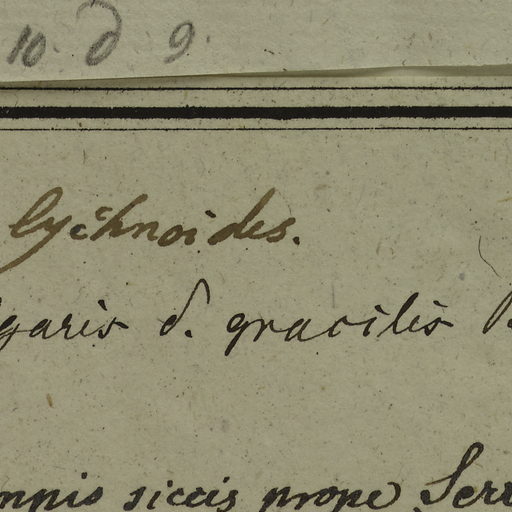 10. d 9.
lychnoides.
garis d. gracilis B
mpis siccis prope Serr